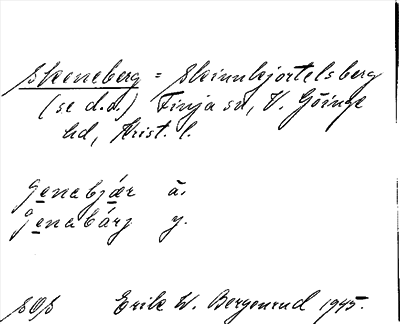 Skeneberg = Skinnkjortelsberg
(se d.o.) Finja sn, V. Göinge
hd, Krist. l.
Jenabjær ä.
Jenabärj y.
SOS Erik W. Bergenrud 1945.